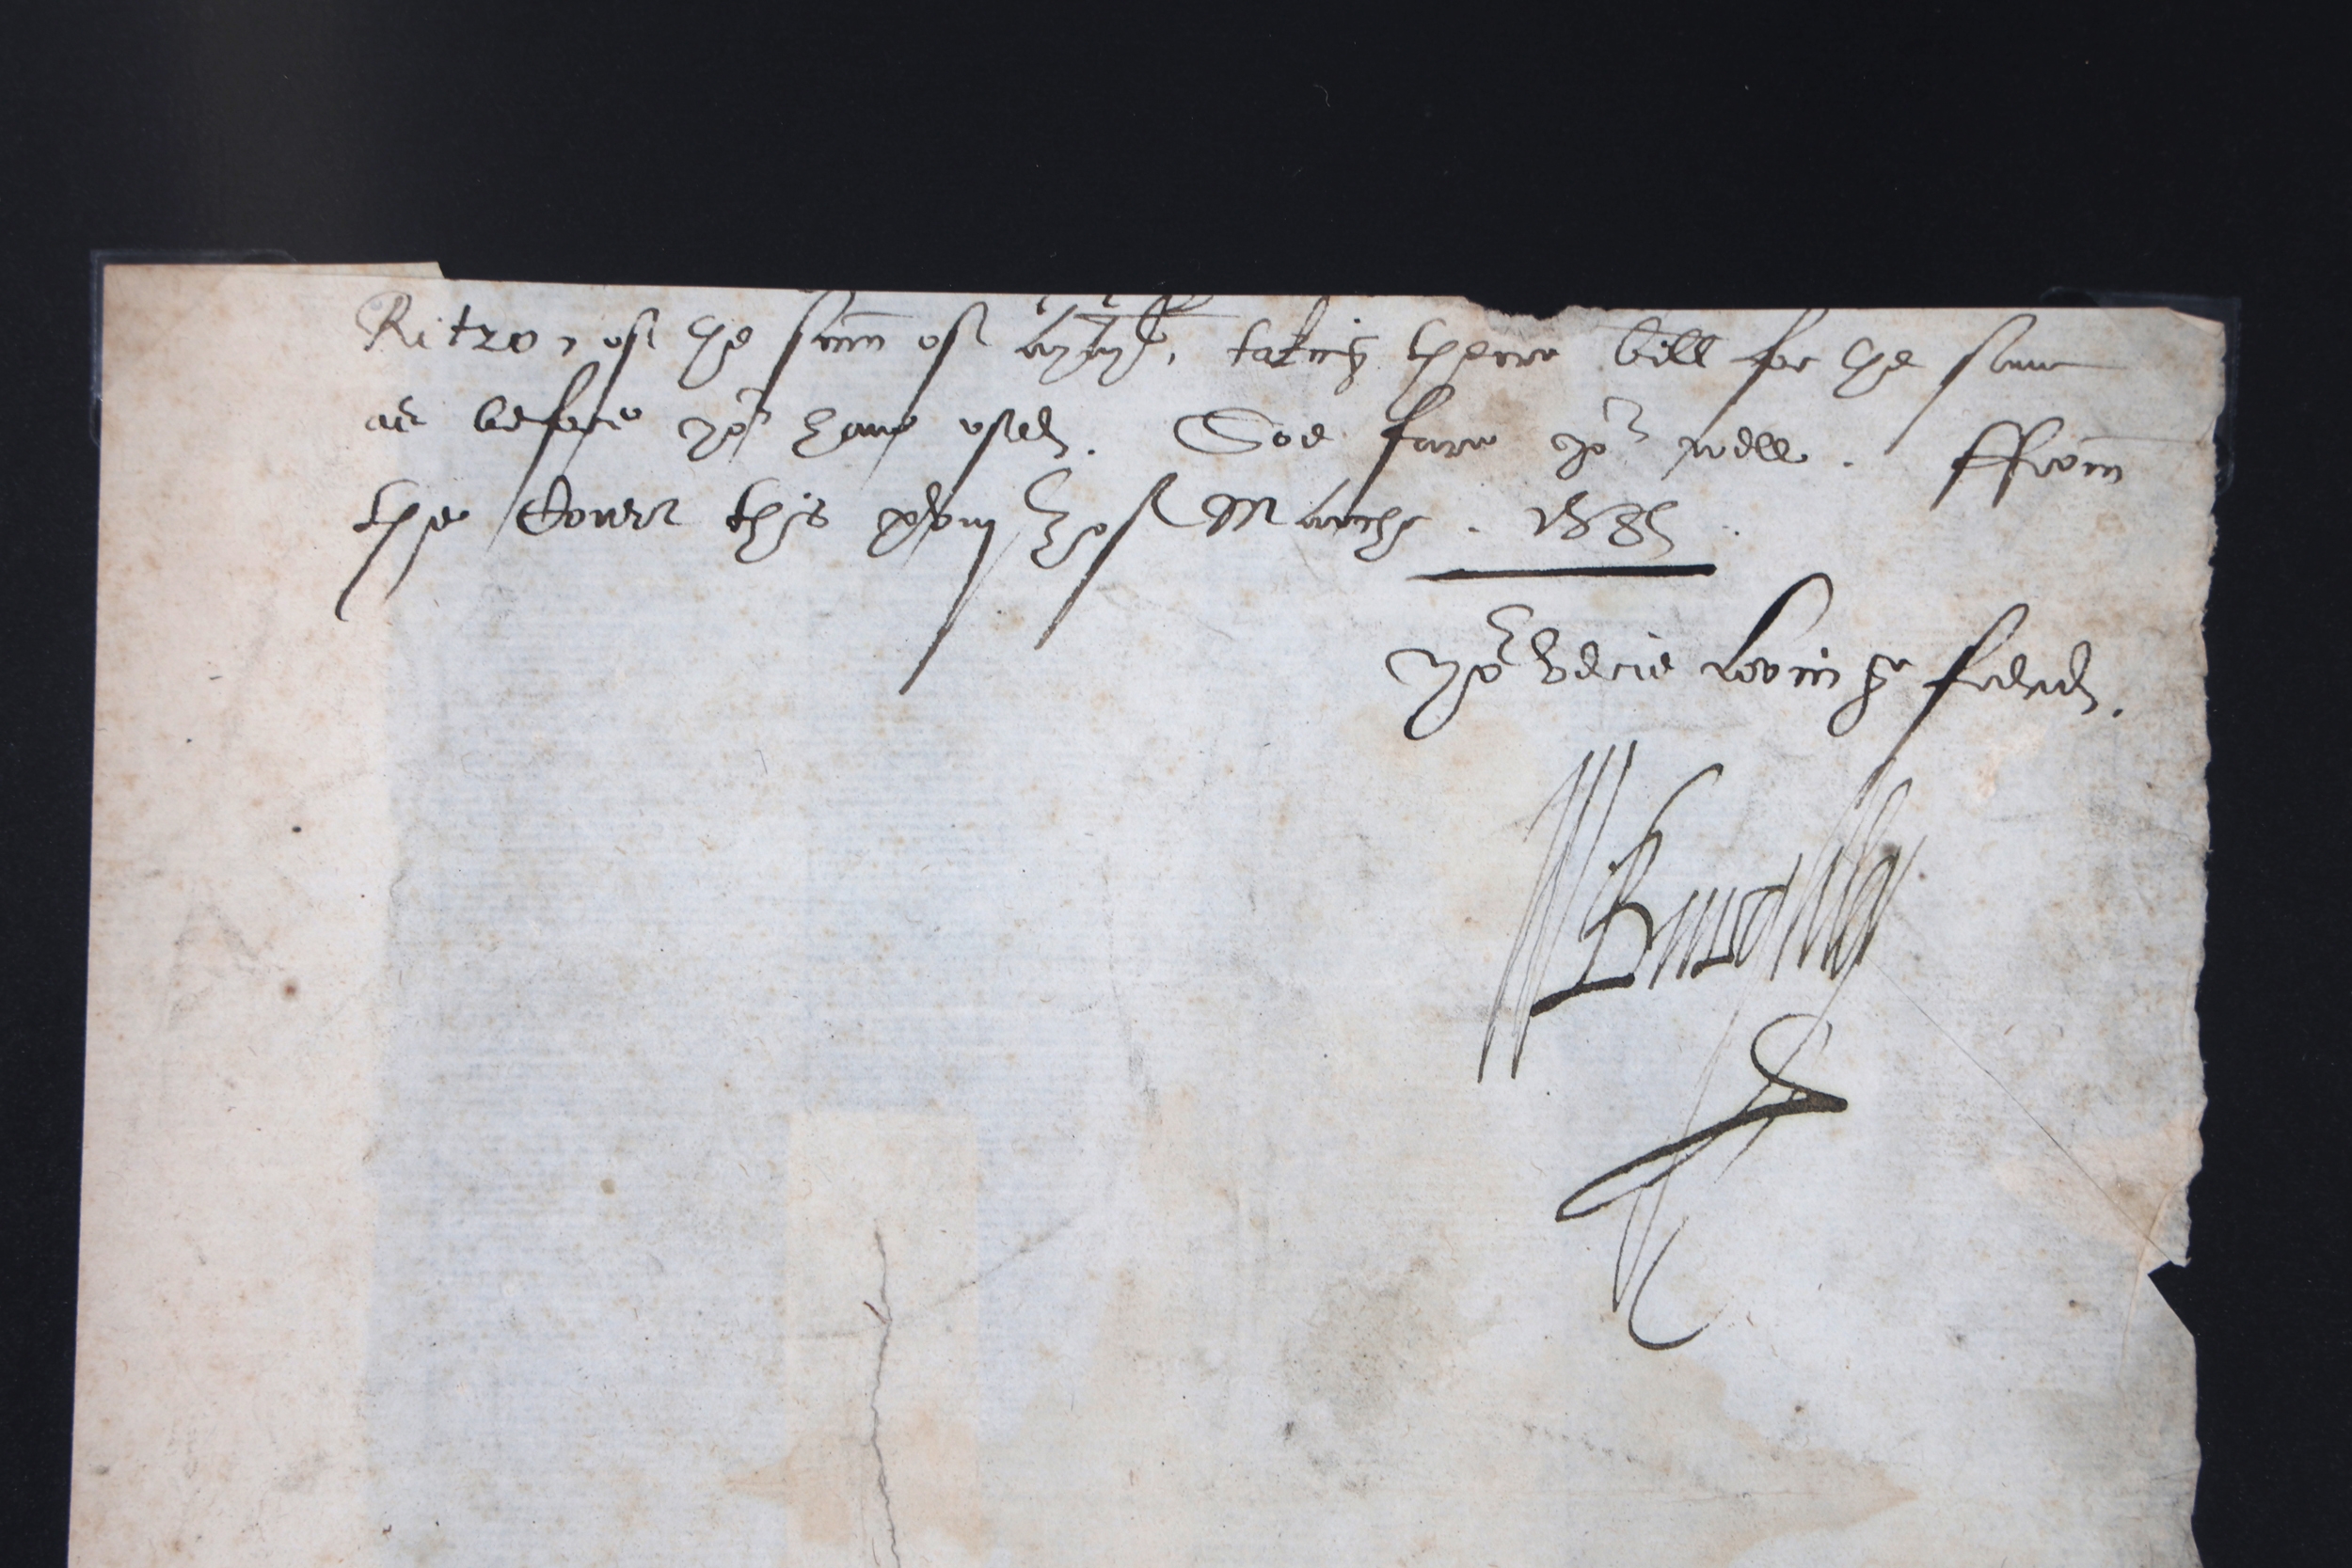 Ritzo, of the som̄ of taking there bill for the same
as before yoᵘ haue used. Soe fare yoᵘ well. ffrom̄
the Courte this of Marche. 1585.
Yoʳ verie lovinge frend.
W Burghley